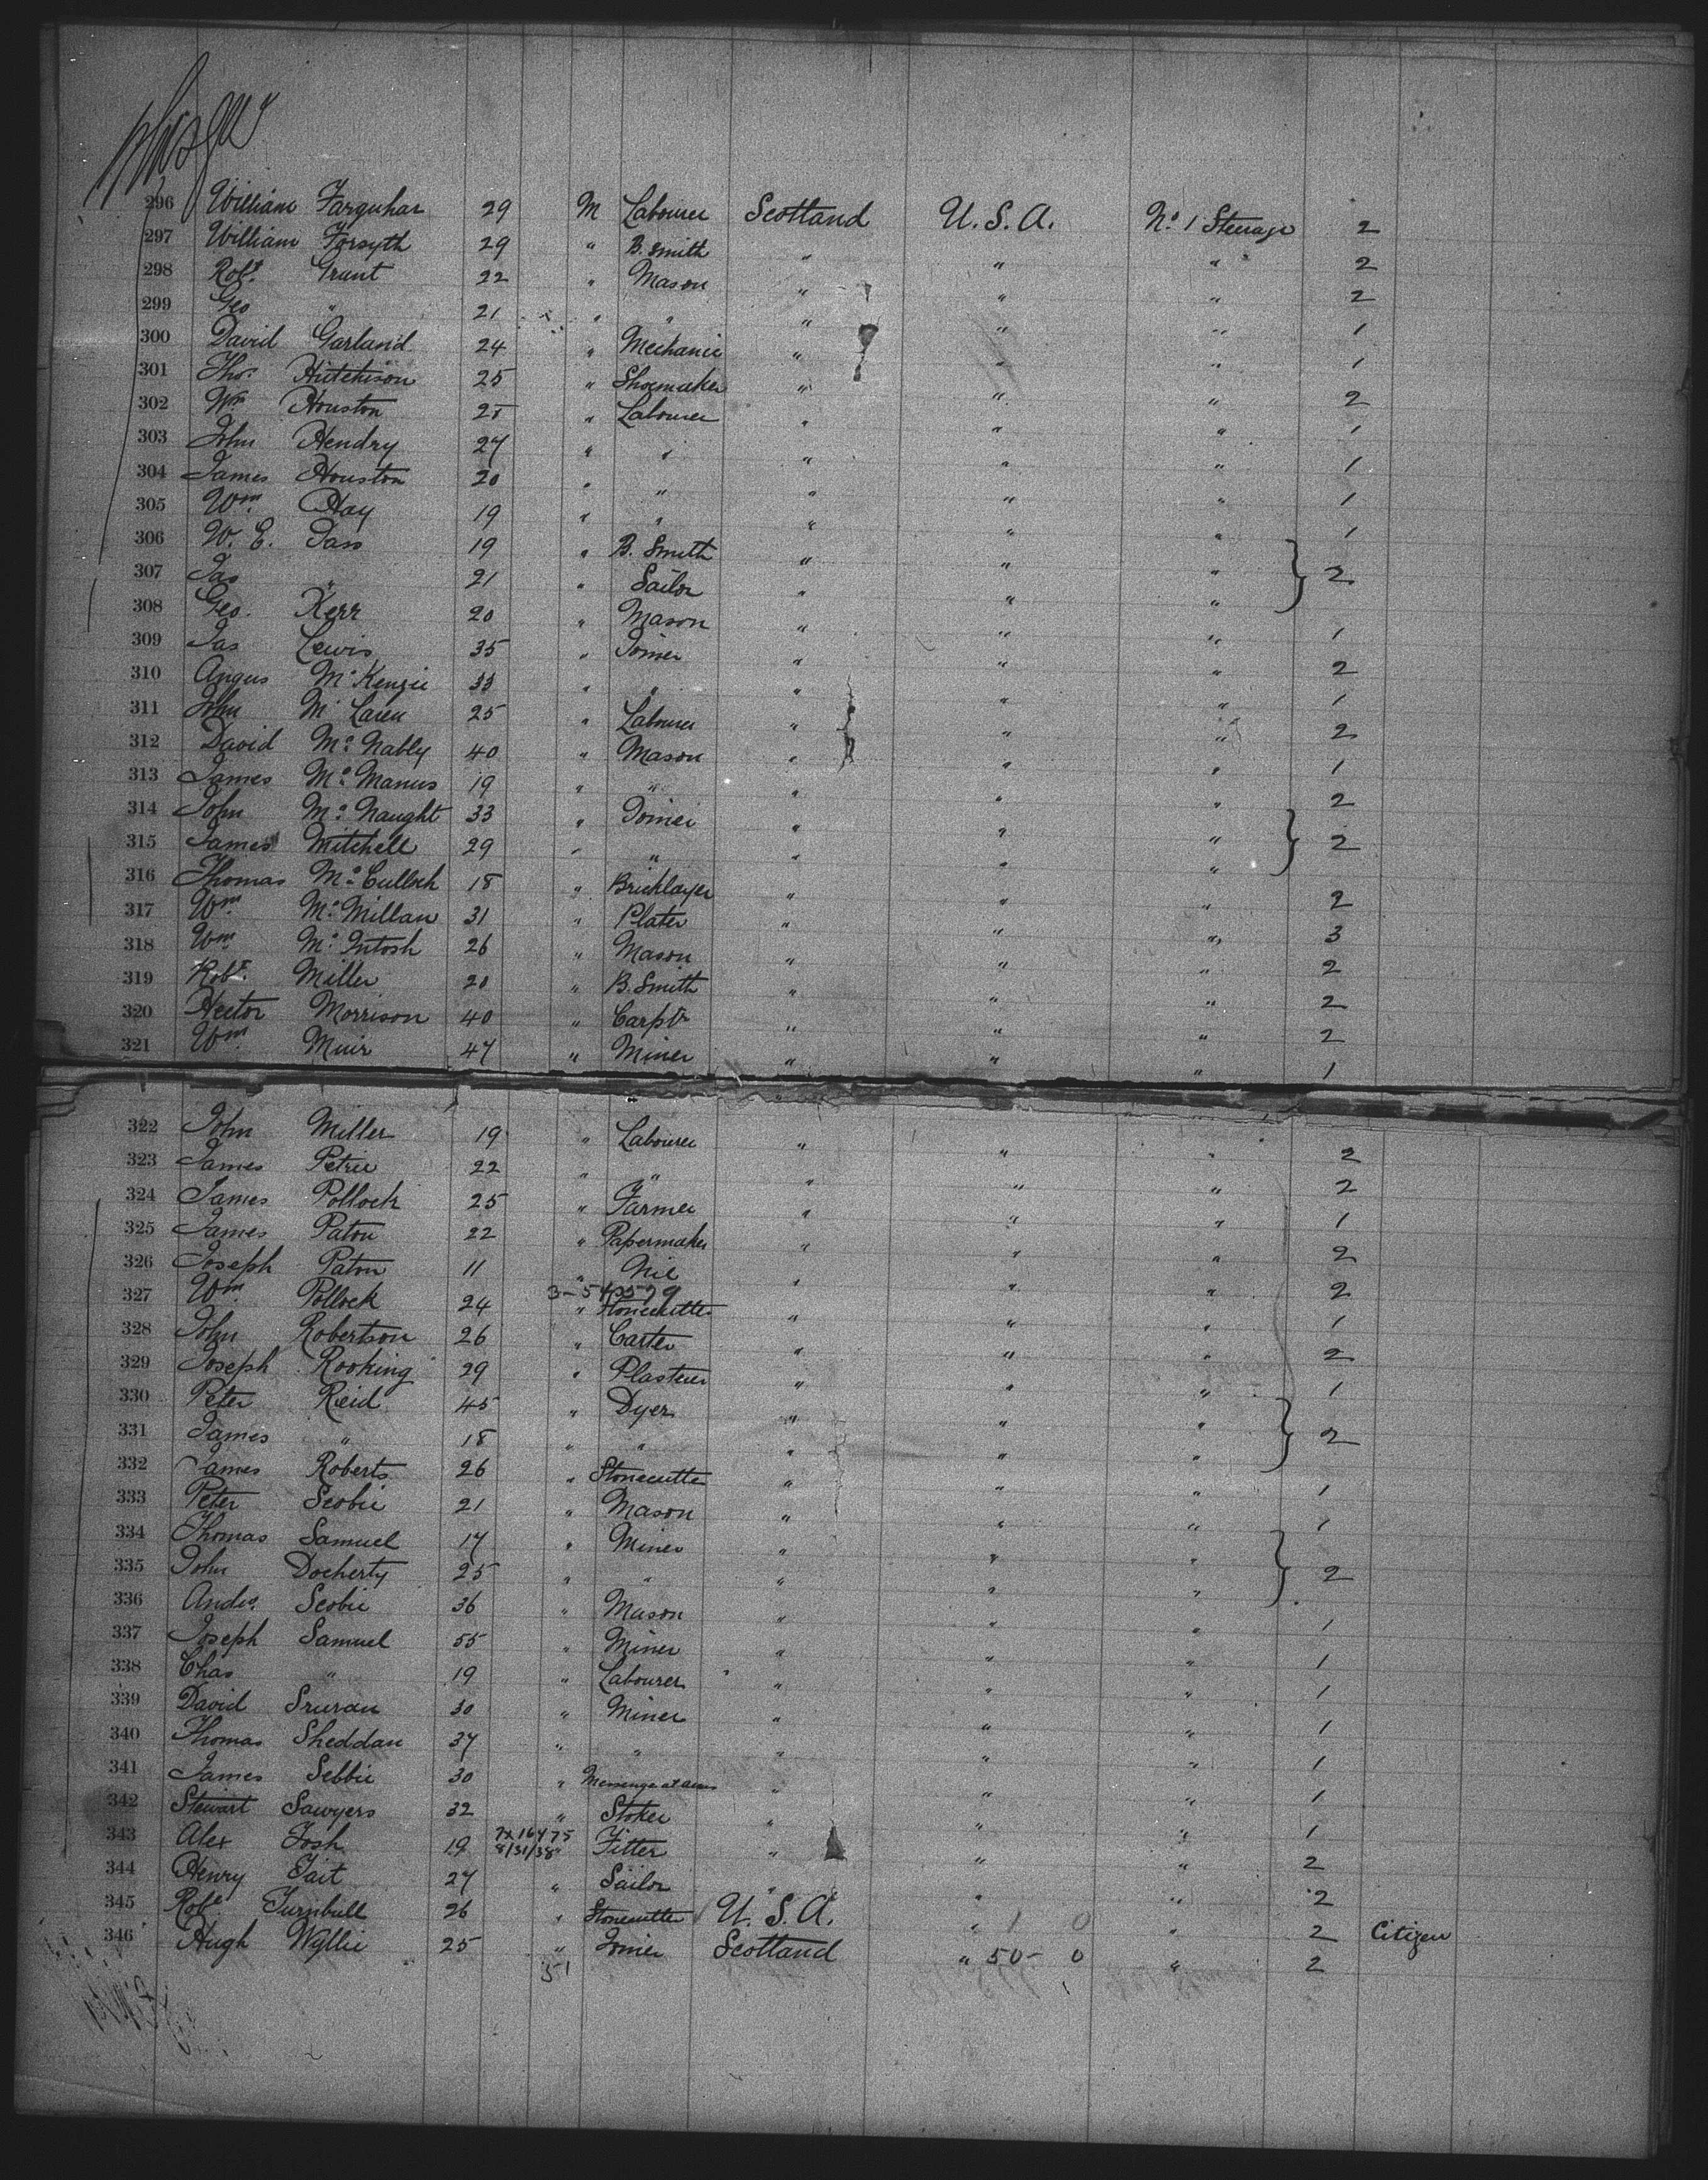 296 William Farquhar 29 M Labourer Scotland U.S.A. No. 1 Steerage 2
297 William Forsyth 29 " B. Smith " " " 2
298 Robt. Grant 22 " Mason " " " 2
299 Geo " 21 " " " " " 1
300 David Garland 24 " Mechanic " " " 1
301 Thos. Hutchison 25 " Shoemaker " " " 2
302 Wm Houston 25 " Labourer " " " 1
303 John Hendry 27 " " " " " 1
304 James Houston 20 " " " " " 1
305 Wm. Hay 19 " " " " " 1
306 W. E. 19 " B. Smith " " " } 2
307 Jas " 21 " Sailor " " "
308 Geo. Kerr 20 " Mason " " " 1
309 Jas Lewis 35 " Joiner " " " 2
310 Angus McKenzie 33 " " " " " 1
311 John McLaren 25 " Labourer " " " 2
312 David McNably 40 " Mason " " " 1
313 James McManus 19 " " " " " 2
314 John McNaught 33 " Joiner " " " } 2
315 James Mitchell 29 " " " " "
316 Thomas McCulloch 18 " Bricklayer " " " 2
317 Wm. McMillan 31 " Plater " " " 3
318 Wm. McIntosh 26 " Mason " " " 2
319 Robt. Miller 20 " B. Smith " " " 2
320 Hector Morrison 40 " Carptr " " " 2
321 Wm. Muir 47 " Miner " " " 1
322 John Miller 19 " Labourer " " " 2
323 James Petrie 22 " " " " " 2
324 James Pollock 25 " Farmer " " " 1
325 James Paton 22 " Papermaker " " " 2
326 Joseph Paton 11 " Nil " " " 2
327 Wm. Pollock 24 " Stonecutter " " " 1
328 John Robertson 26 " Carter " " " 2
329 Joseph Rooking 29 " Plasterer " " " 1
330 Peter Reid 45 " Dyer " " " } 2
331 James " 18 " " " " "
332 James Roberts 26 " Stonecutter " " " 1
333 Peter Scobie 21 " Mason " " " 1
334 Thomas Samuel 17 " Miner " " " } 2
335 John Docherty 25 " " " " "
336 Andw. Scobie 36 " Mason " " " 1
337 Joseph Samuel 55 " Miner " " " 1
338 Chas " 19 " Labourer " " " 1
339 David 30 " Miner " " " 1
340 Thomas Sheddan 37 " " " " " 1
341 James Sebbie 30 " Messenger at arms " " " 1
342 Stewart Sawyers 32 " Stoker " " " 1
343 Alex Tosh 19 7x16475 8/31/38 " Fitter " " " 2
344 Henry Tait 27 " Sailor " " " 2
345 Robt. Turnbull 26 " Stonecutter U.S.A. " 1 0 " 2 Citizen
346 Hugh Wyllie 25 " Joiner Scotland " 50 - 0 " 2
51